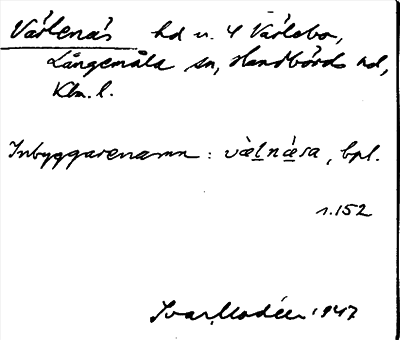 Värlenäs hd u. 4 Värlebo,
Långemåla sn, Handbörds hd,
Klm. l.
Inbyggarenamn: væ̀l̠næ̠sa, bpl.
s. 152
Ivar Modéer 1947